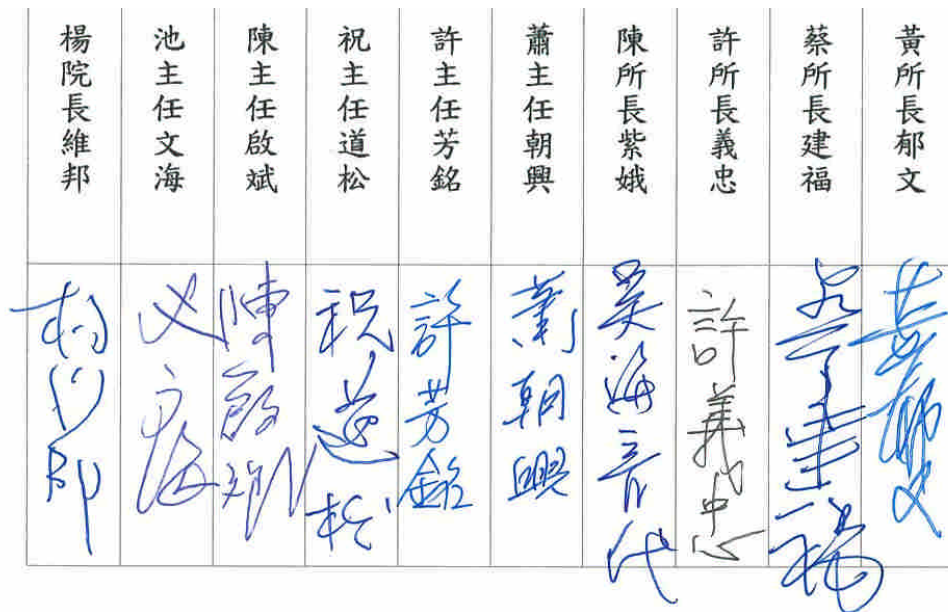 黃所長郁文
蔡所長建福
許所長義忠
陳所長紫娥
蕭主任朝興
許主任芳銘
祝主任道松
陳主任啟斌
池主任文海
楊院長維邦
黃郁文
蔡建福
許義忠
吳海音代
蕭朝興
許芳銘
祝道松
陳啟斌
池文海
楊維邦